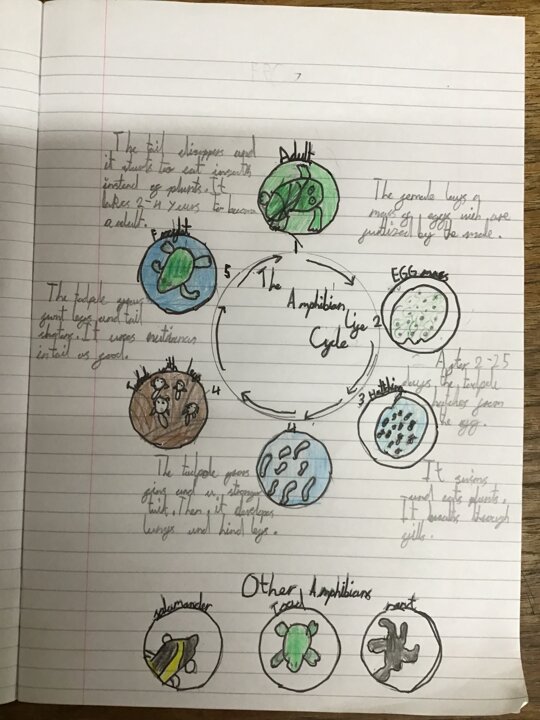 Adult
The tail disappers and
it starts too eat insects
instead of plants. It
takes 2-4 years to become
a adult.
The female lays a
mass of eggs wich are
by the male.
EGG mass
2
After 2-25
days the tadpole
hatches from
the egg.
3
It swims
and eats plants.
It breaths through
gills.
4
The tadpole grows
gins and a stronger
tail. Then it develops
lungs and hind legs.
4
with legs
The tadpole grows
legs and tail
It uses
in tail as food.
5
The
Amphibian
Life
Cycle
Other Amphibians
salamander
Toad
newt